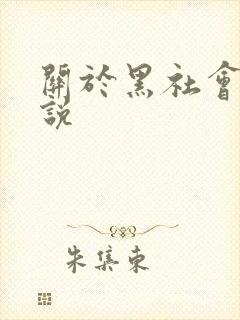 關於黑社會
說
朱集東